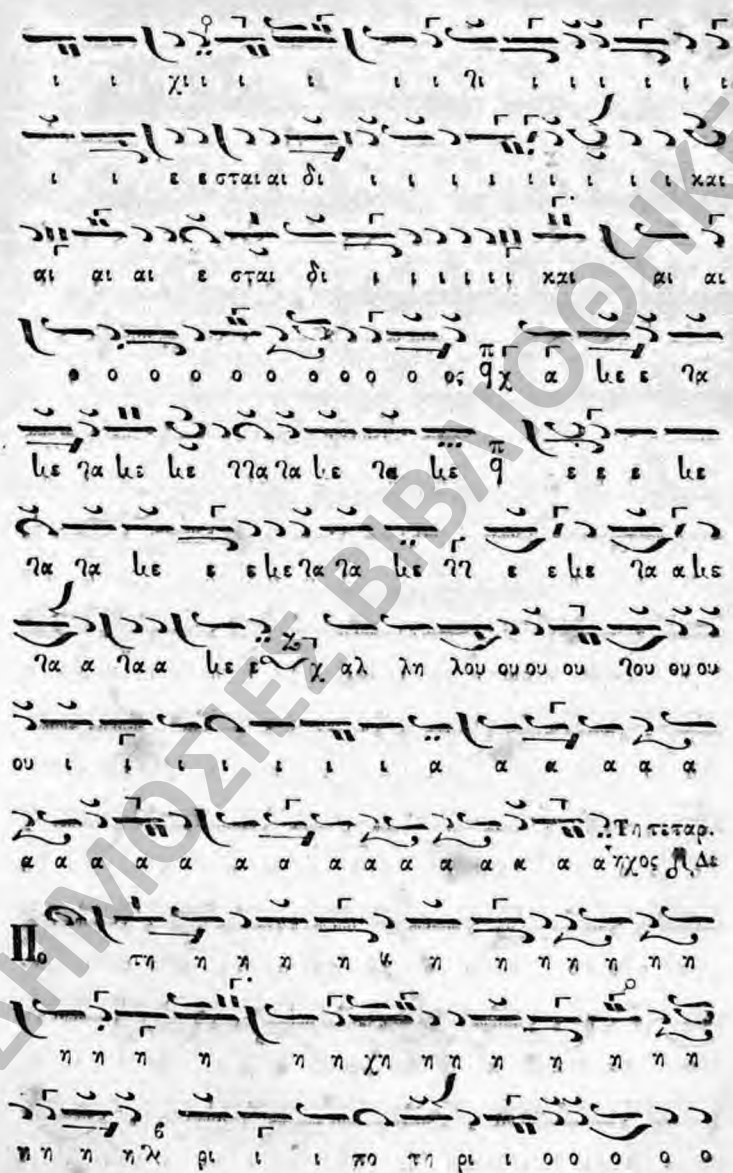 ι ι χι ι ι ι ι ι γι ι ι ι ι ι ι
ι ι ε ε σται αι δι ι ι ι ι ι ι ι ι ι και
αι αι αι ε σται δι ι ι ι ι ι ι και αι αι
ο ο ο ο ο ο ο ο ο ο ο ος π q χ α με ε γα
με γα με με γγα γα με γα με π q ε ε ε με
γα γα με ε ε με γα γα με γγ ε ε με γα α με
γα α γα α με ε χ αλ λη λου ου ου ου γου ου ου
ου ι ι ι ι ι ι ι α α α α α α
α α α α α α α α α α α α α α
Τη τεταρ. ηχος Δε
Πο τη η η η η η η η η η η η η
η η η η η η χη η η η η η η η
η η η η ρι ι ι πο τη ρι ι ο ο ο ο ο
ΔΗΜΟΣΙΕΣ ΒΙΒΛΙΟΘΗΚΕ